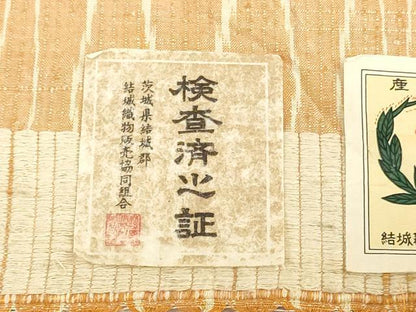 検査済之証
茨城県結城郡
結城織物販売協同組合
産
結城